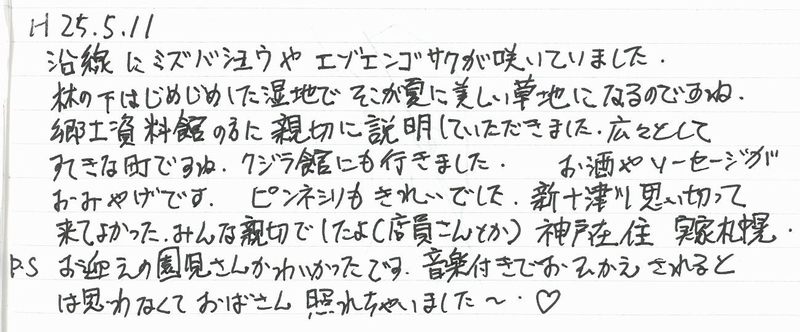 H 25.5.11
沿線にミズバショウやエゾエンゴサクが咲いていました.
林の下はじめじめした湿地でそこが夏に美しい草地になるのですね.
郷土資料館の方に親切に説明していただきました. 広々として
すてきな町ですね. クジラ館にも行きました. お酒やソーセージが
おみやげです. ピンネシリもきれいでした. 新十津川思い切って
来てよかった. みんな親切でしたよ(店員さんとか) 神戸在住 実家札幌.
P.S お迎えの園児さんかわいかったです. 音楽付きでおでむかえされると
は思わなくておばさん照れちゃいました〜. ♡